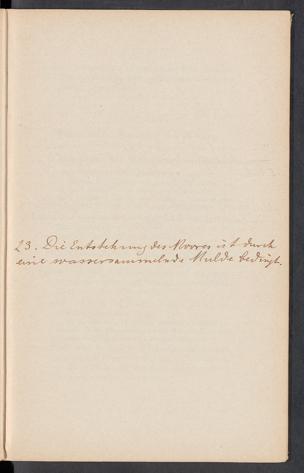 23. Die Entstehung des Moores ist durch
eine wassersammelnde Mulde bedingt.